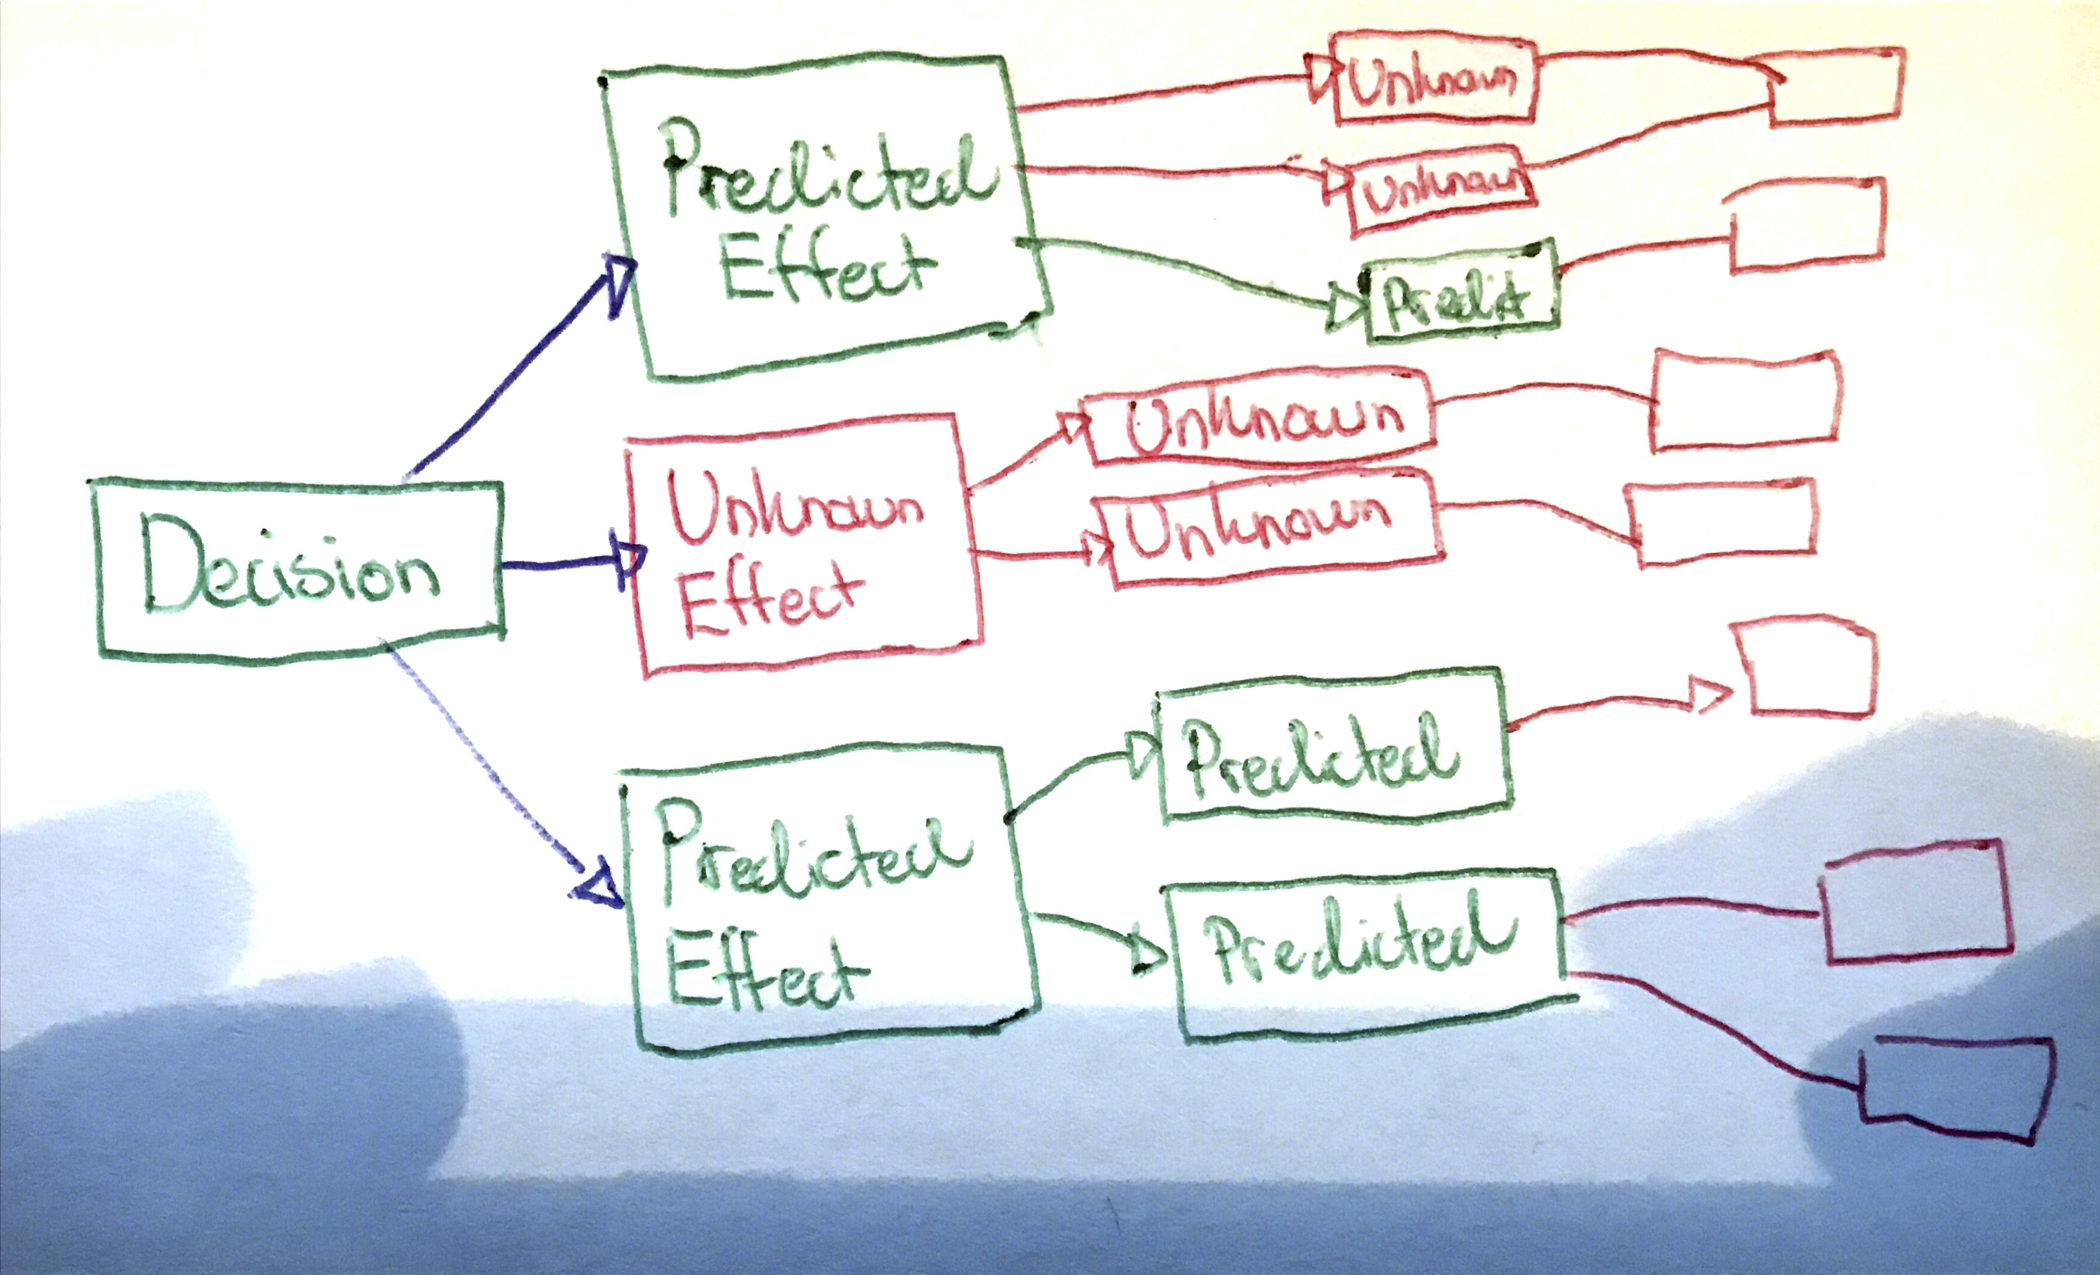 Predicted
Effect
Unknown
Unknown
Predict
Decision
Unknown
Effect
Unknown
Unknown
Predicted
Effect
Predicted
Predicted